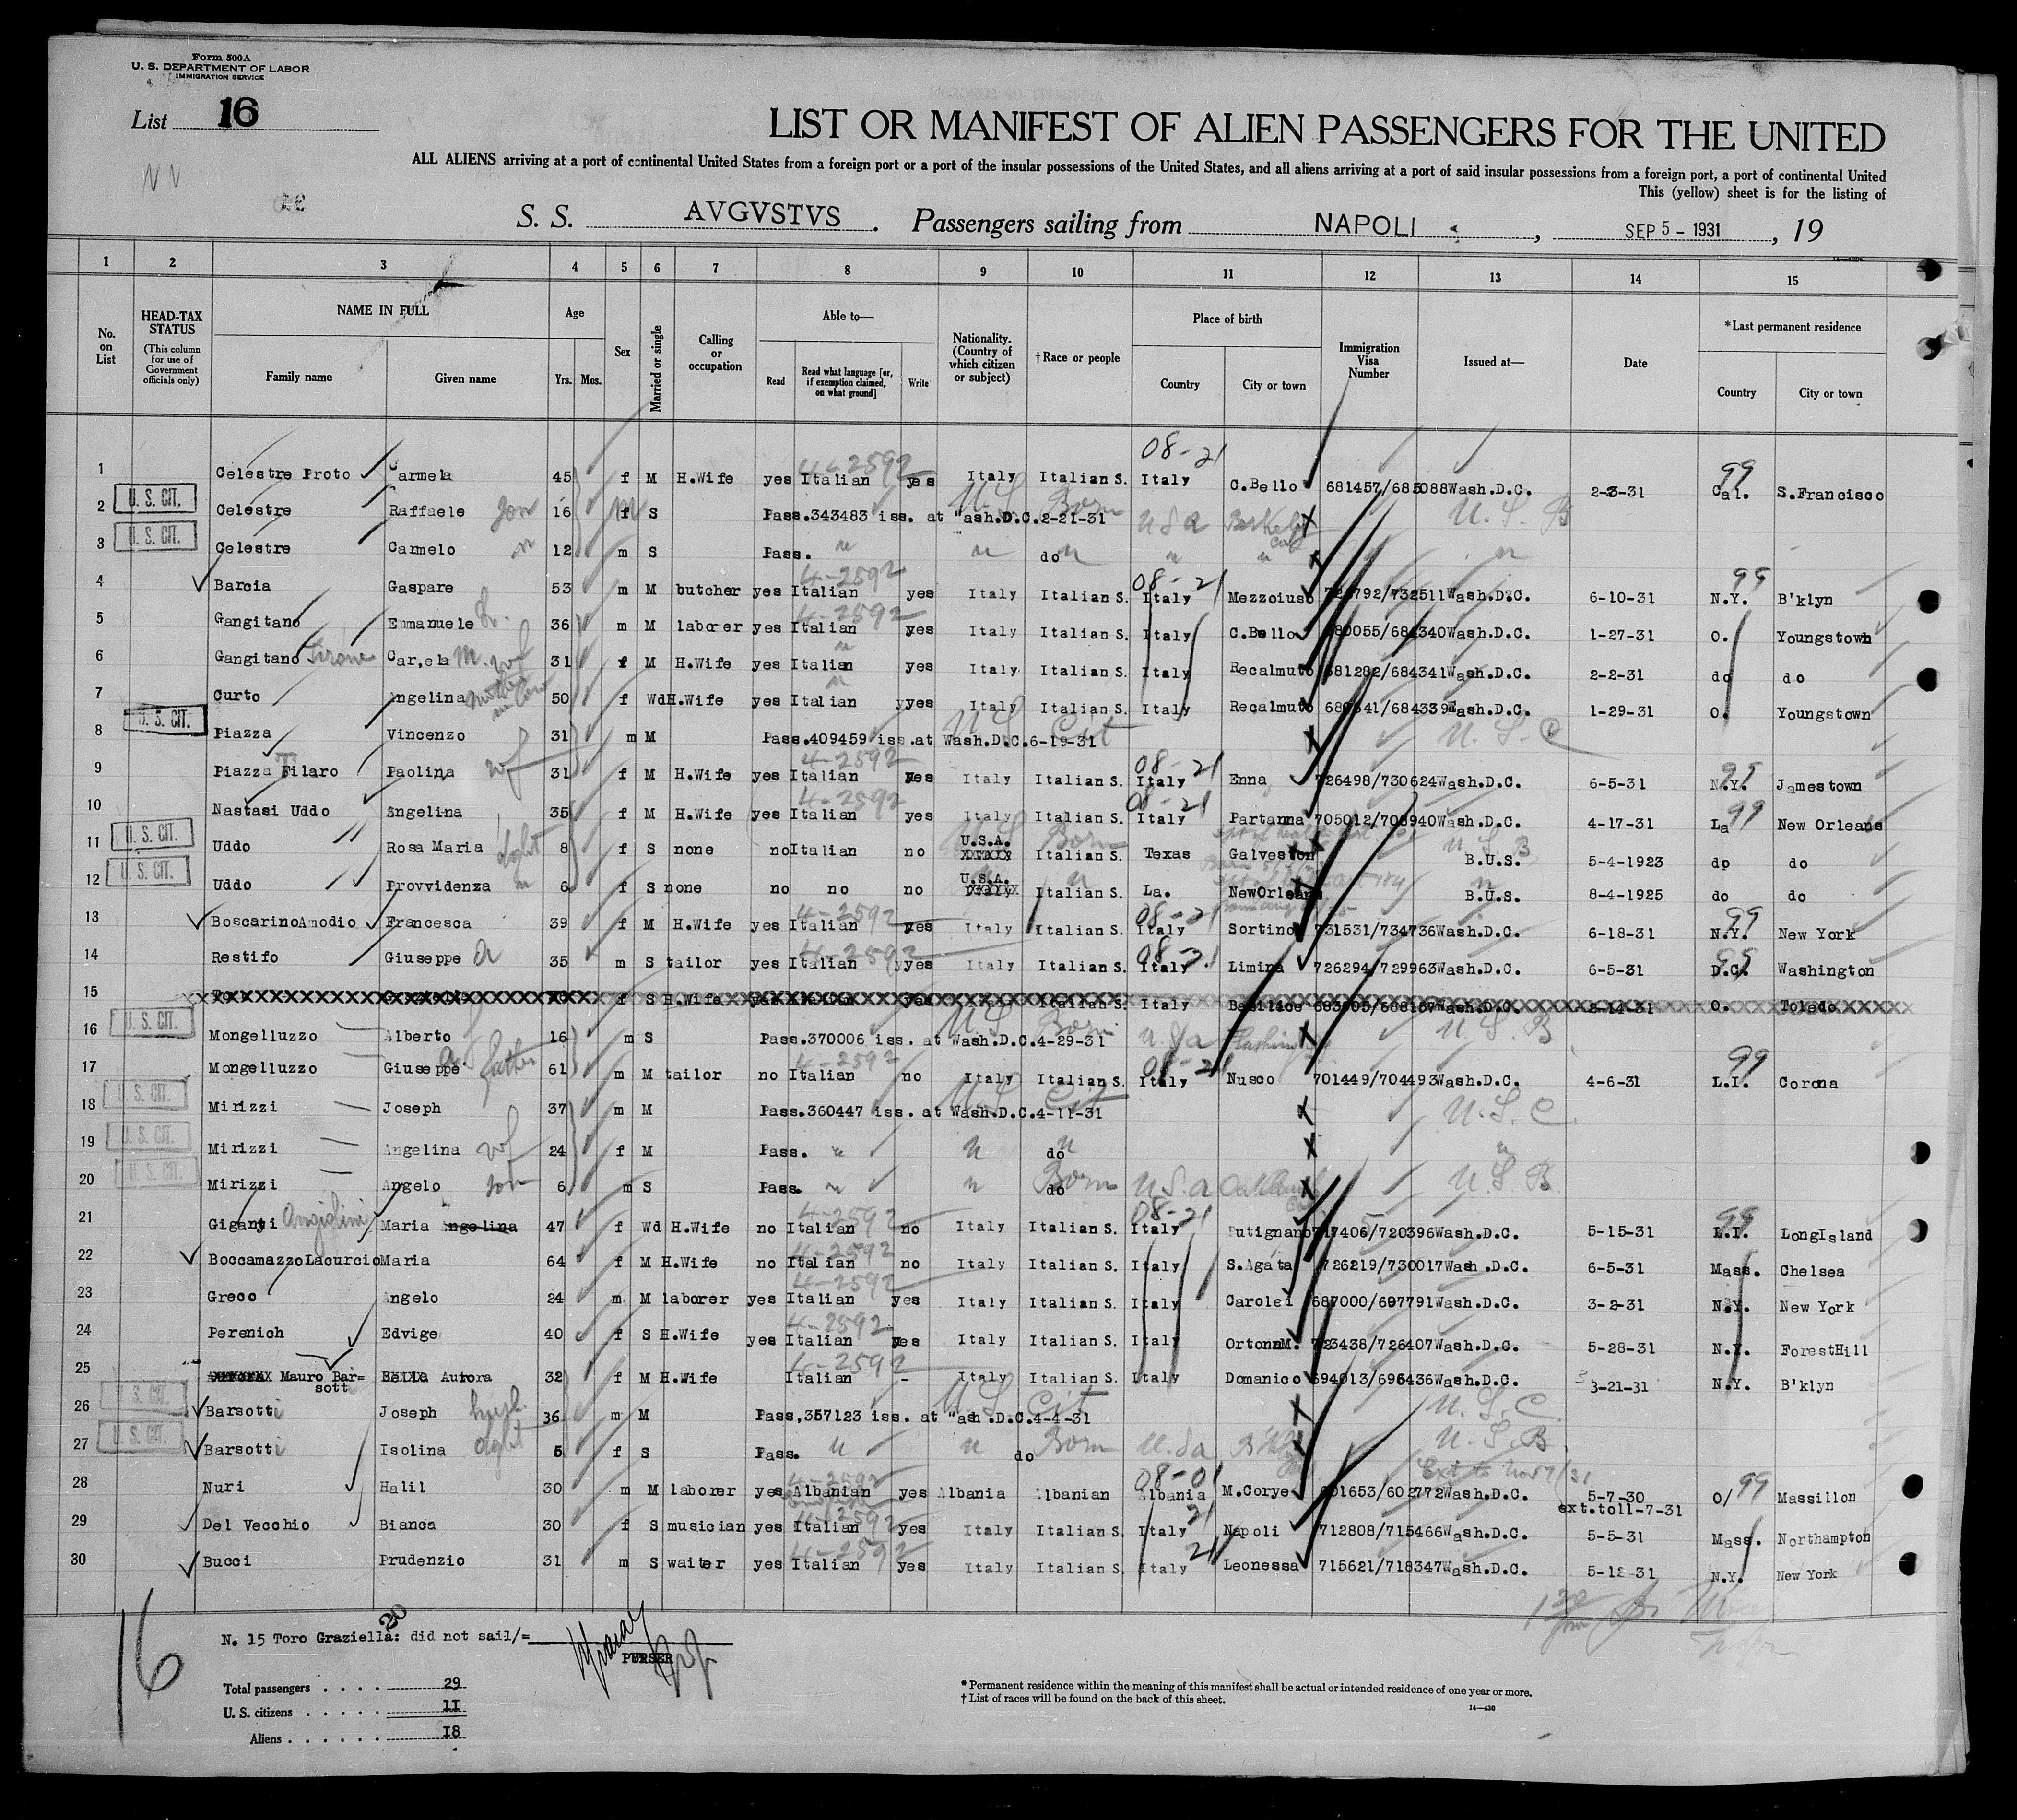 Form 500A
U. S. DEPARTMENT OF LABOR
IMMIGRATION SERVICE
List 16
LIST OR MANIFEST OF ALIEN PASSENGERS FOR THE UNITED
ALL ALIENS arriving at a port of continental United States from a foreign port or a port of the insular possessions of the United States, and all aliens arriving at a port of said insular possessions from a foreign port, a port of continental United
This (yellow) sheet is for the listing of
S. S. AVGVSTVS. Passengers sailing from NAPOLI, SEP 5 - 1931, 19
1 2 3 4 5 6 7 8 9 10 11 12 13 14 15
No. on List
HEAD-TAX STATUS (This column for use of Government officials only)
NAME IN FULL Family name Given name
Age Yrs. Mos.
Sex
Married or single
Calling or occupation
Able to— Read Read what language [or, if exemption claimed, on what ground] Write
Nationality. (Country of which citizen or subject)
†Race or people
Place of birth Country City or town
Immigration Visa Number
Issued at—
Date
*Last permanent residence Country City or town
1 Celestre Proto Carmela 45 f M H.Wife yes Italian 4-2592 yes Italy Italian S. 08-21 Italy C.Bello 681457/685088 Wash.D.C. 2-3-31 99 Cal. S.Francisco
2 U. S. CIT. Celestre Raffaele son 16 f S Pass.343483 iss. at "ash.D.C.2-21-31 U.S. Born U S a U. S. B
3 U. S. CIT. Celestre Carmelo " 12 m S Pass. " " do " " " "
4 Barcia Gaspare 53 m M butcher yes Italian 4-2592 yes Italy Italian S. 08-21 Italy Mezzoiuso Wash.D.C. 6-10-31 N.Y. B'klyn
5 Gangitano Emmanuele 36 m M laborer yes Italian 4-2592 yes Italy Italian S. Italy C.Bello Wash.D.C. 1-27-31 O. Youngstown
6 Gangitano Car,ela M. wf 31 f M H.Wife yes Italian " yes Italy Italian S. Italy Recalmuto 681282/684341 Wash.D.C. 2-2-31 do do
7 Curto Angelina 50 f Wd H.Wife yes Italian " yes Italy Italian S. Italy Recalmuto Wash.D.C. 1-29-31 O. Youngstown
8 U. S. CIT. Piazza Vincenzo 31 m M Pass.409459 iss.at Wash.D.C.6-19-31 U S Cit U. S. C
9 Piazza Filaro Paolina wf 31 f M H.Wife yes Italian 4-2592 yes Italy Italian S. 08-21 Italy Enna 726498/730624 Wash.D.C. 6-5-31 N.Y. Jamestown
10 Nastasi Uddo Angelina 35 f M H.Wife yes Italian 4-2592 yes Italy Italian S. 08-21 Italy Partanna 705012/708940 Wash.D.C. 4-17-31 99 La New Orleans
11 U. S. CIT. Uddo Rosa Maria dght 8 f S none no Italian no U.S.A. Italian S. Texas Galveston B.U.S. U. S. B 5-4-1923 do do
12 U. S. CIT. Uddo Provvidenza " 6 f S none no no no U.S.A. Italian S. La. NewOrleans B.U.S. 8-4-1925 do do
13 BoscarinoAmodio Francesca 39 f M H.Wife yes Italian 4-2592 yes Italy Italian S. 08-21 Italy Sortino 731531/734736 Wash.D.C. 6-18-31 99 N.Y. New York
14 Restifo Giuseppe a 35 m S tailor yes Italian 4-2592 yes Italy Italian S. 08-21 Italy Limina 726294/729963 Wash.D.C. 6-5-31 D.C. Washington
15 f S H.Wife yes Italian yes Italian S. Italy Basilice Wash.D.C. 2-14-31 O. Toledo
16 U. S. CIT. Mongelluzzo Alberto 16 m S Pass.370006 iss. at Wash.D.C.4-29-31 U S Born U S a U S B
17 Mongelluzzo Giuseppe father 61 m M tailor no Italian 4-2592 no Italy Italian S. 08-21 Italy Nusco 701449/704493 Wash.D.C. 4-6-31 99 L.I. Corona
18 U. S. CIT. Mirizzi Joseph 37 m M Pass.360447 iss. at Wash.D.C.4-11-31 U S Cit U. S. C.
19 U. S. CIT. Mirizzi Angelina wf 24 f M Pass. " " do " "
20 U. S. CIT. Mirizzi Angelo son 6 m S Pass. " " do Born U.S.a U. S. B
21 Giganti Angiolini Maria Angelina 47 f Wd H.Wife no Italian 4-2592 no Italy Italian S. 08-21 Italy Putignano 717406/720396 Wash.D.C. 5-15-31 99 L.I. LongIsland
22 BoccamazzoLacurcio Maria 64 f M H.Wife no Italian 4-2592 no Italy Italian S. Italy S.Agata 726219/730017 Wash.D.C. 6-5-31 Mass. Chelsea
23 Greco Angelo 24 m M laborer yes Italian 4-2592 yes Italy Italian S. Italy Carolei 687000/697791 Wash.D.C. 3-2-31 N.Y. New York
24 Perenich Edvige 40 f S H.Wife yes Italian 4-2592 yes Italy Italian S. Italy OrtonaM. 723438/726407 Wash.D.C. 5-28-31 N.Y. ForestHill
25 Mauro Bar=sott Aurora 32 f M H.Wife Italian 4-2592 - Italy Italian S. Italy Domanico 694013/696436 Wash.D.C. 3-21-31 N.Y. B'klyn
26 U. S. CIT. Barsotti Joseph husb. 36 m M Pass,357123 iss. at "ash.D.C.4-4-31 U S Cit U. S. C
27 U. S. CIT. Barsotti Isolina dght 5 f S Pass. " " do Born U.Sa U. S. B.
28 Nuri Halil 30 m M laborer yes Albanian 4-2592 yes Albania Albanian 08-01 Albania M.Corye 601653/602772 Wash.D.C. 5-7-30 ext.toll-7-31 O/ 99 Massillon
29 Del Vecchio Bianca 30 f S musician yes Italian 4-2592 yes Italy Italian S. Italy 21 Napoli 712808/715466 Wash.D.C. 5-5-31 Mass. Northampton
30 Bucci Prudenzio 31 m S waiter yes Italian 4-2592 yes Italy Italian S. Italy 21 Leonessa 715621/718347 Wash.D.C. 5-12-31 N.Y. New York
16
30
N. 15 Toro Graziella: did not sail/=
PURSER
Total passengers . . . . 29
U. S. citizens . . . . . 11
Aliens . . . . . . 18
* Permanent residence within the meaning of this manifest shall be actual or intended residence of one year or more.
† List of races will be found on the back of this sheet.
14—430